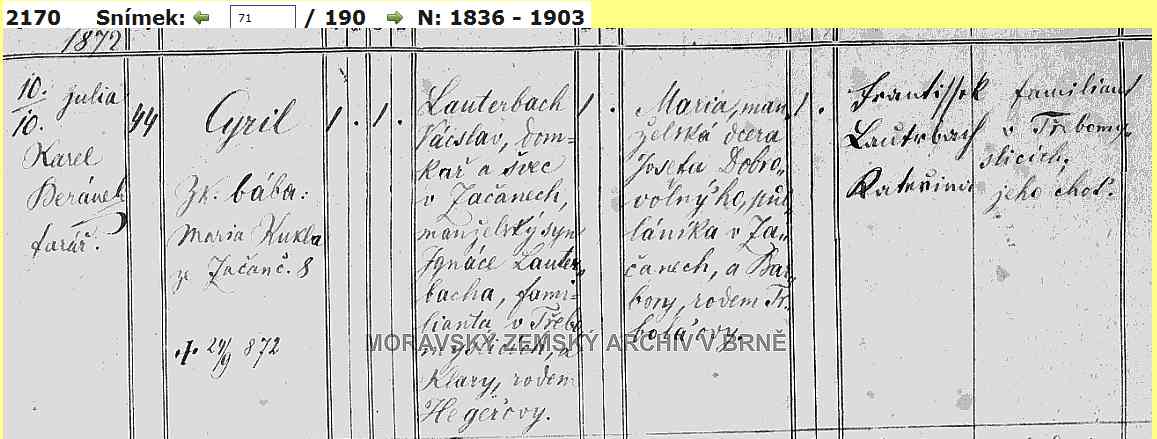 2170 Snímek: 71 / 190 N: 1836 - 1903
1872
10. julia
10.
Karel
Beránek
farář.
44
Cyril
Zk. bába:
Maria Kukla
ze Začan č. 8
† 24/9 872
1 . 1 .
Lauterbach
Václav, dom-
kař a švec
v Začanech,
manželský syn
Ignáce Lauter-
bacha, fami-
lianta v Třebo
myslicích, a
Klary, rodem
Hegerovy.
1 .
Maria, man-
želská dcera
Josefa Dobro-
volnýho, půl-
láníka v Za-
čanech, a Bar-
bory, rodem
1 .
Frantissek
Lauterbach
Kateřina
familiant
v Třebomy-
slicích,
jeho choť.
MORAVSKÝ ZEMSKÝ ARCHIV V BRNĚ